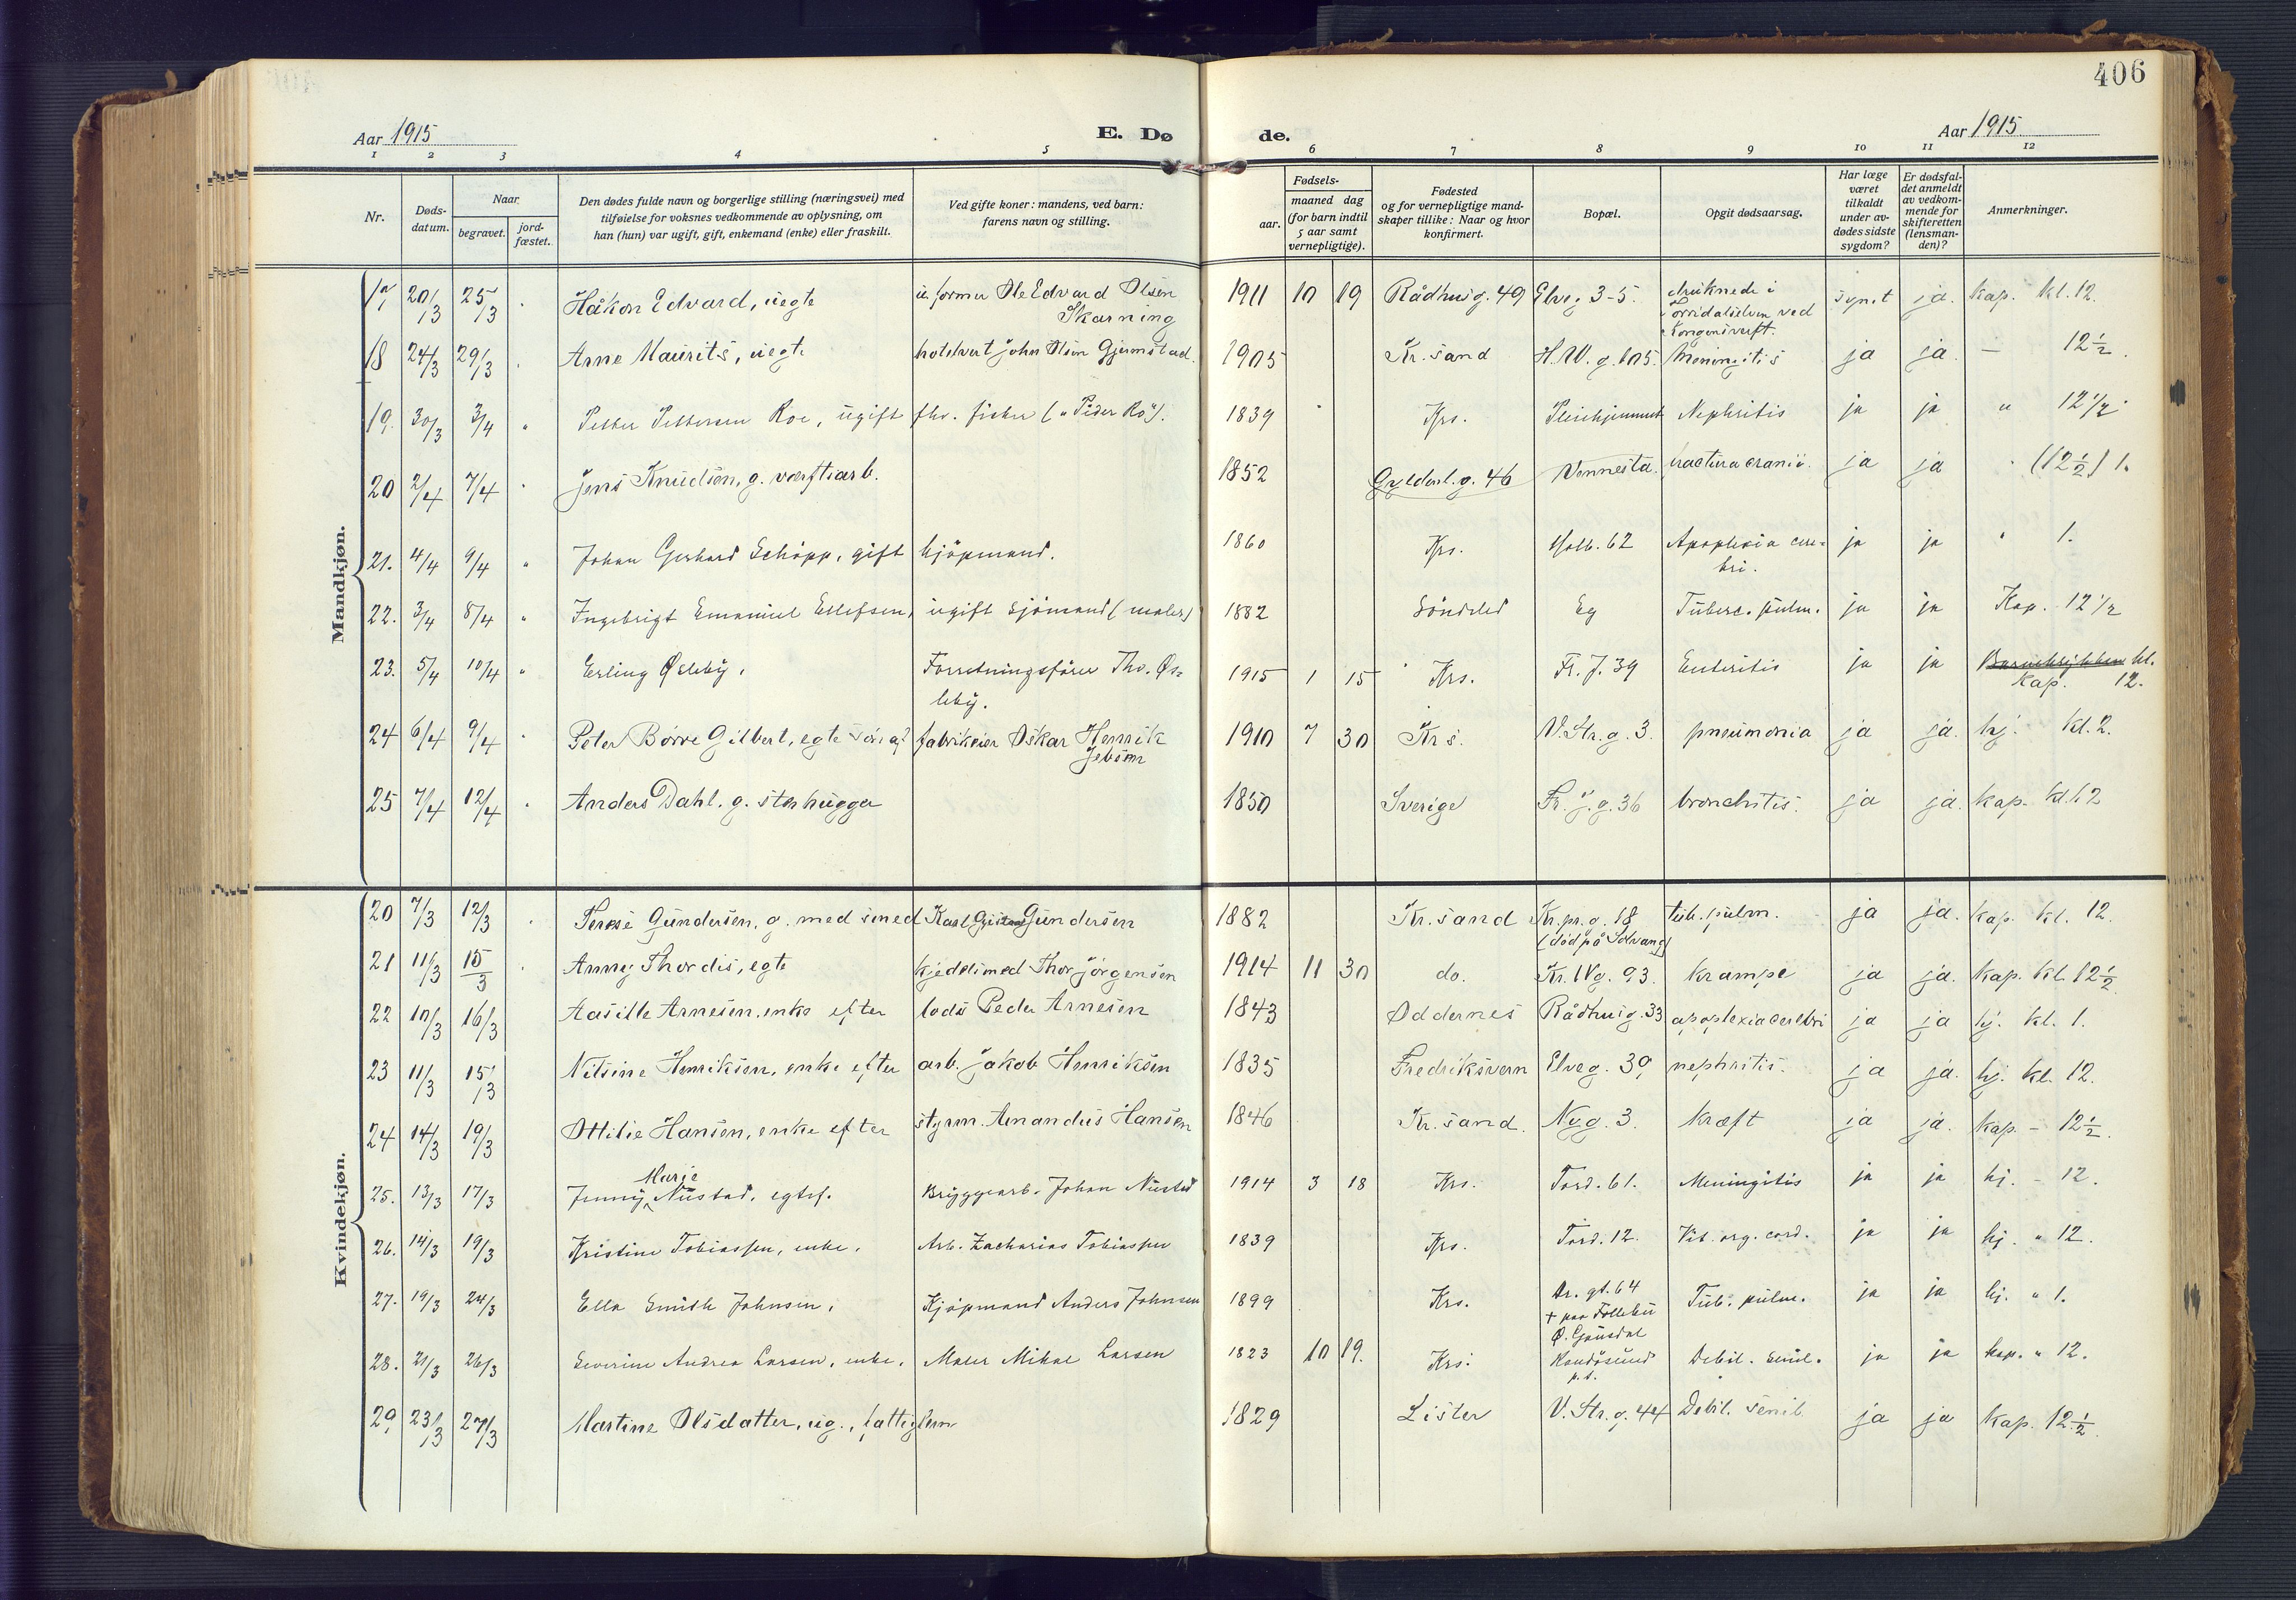 406
Aar 1915
E. Dø de.
Aar 1915
1 2 3 4 5 6 7 8 9 10 11 12
Nr.
Døds-datum.
Naar
begravet.
jord-fæstet.
Den dødes fulde navn og borgerlige stilling (næringsvei) med
tilføielse for voksnes vedkommende av oplysning, om
han (hun) var ugift, gift, enkemand (enke) eller fraskilt.
Ved gifte koner: mandens, ved barn:
farens navn og stilling.
Fødsels-
aar.
maaned dag
(for barn indtil
5 aar samt
vernepligtige).
Fødested
og for vernepligtige mand-
skaper tillike: Naar og hvor
konfirmert.
Bopæl.
Opgit dødsaarsag.
Har læge
været
tilkaldt
under av-
dødes sidste
sygdom?
Er dødsfal-
det anmeldt
av vedkom-
mende for
skifteretten
(lensman-
den)?
Anmerkninger.
Mandkjøn.
17 20/3 25/3 Håkon Edvard, uegte former Ole Edvard Olsen 1911 10 19 Rådhusg. 49 Elveg. 3-5. druknede i synet ja. kap. kl. 12.
Skarning Torridalselven ved
Kongensverft.
18 24/3 29/3 Arne Maurits, uegte hotelvert John Olsen Gjermstad. 1905 Kr.sand H.W.g. 105. Meningitis ja ja. — 12 1/2.
19. 30/3 3/4 " Petter Pettersen Roe, ugift fhv. fisker ("Peder Ro"). 1839 Krs. Pleiehjemmet Nephritis ja ja " 12 1/2.
20 2/4 7/4 Jens Knudsen, g. værftsarb. 1852 Gyldenl.g. 46 Vennesla. fractura cranii. ja ja " (12 1/2) 1.
21. 4/4 9/4 " Johan Gerhard Schøpp, gift kjøpmand. 1860 Krs. Holb. 62 Apoplexia cere- ja ja " 1.
bri.
22. 3/4 8/4 " Ingebrigt Emanuel Ellefsen, ugift sjømand (maler) 1882 Søndeled Eg Tuberc. pulm. ja ja Kap. 12 1/2
23. 5/4 10/4 " Erling Øsleby. Forretningsfører Thv. Øs- 1915 1 15 Krs. Fr. J. 39 Enteritis ja ja kl.
leby. kap. 12.
24 6/4 9/4 Peter Børre Gilbert, egte fabrikeier Oskar Henrik 1910 7 30 Krs. V.Str.g. 3. pneumonia ja ja. hj. kl. 2.
Jebsen
25 7/4 12/4 Anders Dahl. g. stenhugger 1850 Sverige Fr. J.g. 36 bronchitis. ja ja. kap. kl. 12
Kvindekjøn.
20 7/3 12/3 Terese Gundersen, g. med smed Karl Gundersen 1882 Kr.sand Kr.pr.g. 18 tub. pulm. ja ja. kap. kl. 12.
(død på Solvang)
21 11/3 15/3 Anny Thordis, egte kjedelsmed Thor Jørgensen 1914 11 30 do. Kr. IVg. 93. krampe ja ja. kap. kl. 12 1/2.
22 10/3 16/3 Aasille Arnesen, enke efter lods Peder Arnesen 1843 Oddernes Rådhusg. 33 apoplexia cerebri ja ja hj. kl. 1.
23 11/3 15/3 Nilsine Henriksen, enke efter arb. Jakob Henriksen 1835 Fredriksvern Elveg. 39 nephritis. ja ja. hj. kl. 12.
24 14/3 19/3 Ottilie Hansen, enke efter styrm. Amandus Hansen 1846 Kr.sand. Nyg. 3. kræft ja ja. kap. – 12 1/2.
Marie
25. 13/3 17/3 Jenny Nustad, egtef. Bryggearb. Johan Nustad 1914 3 18 Krs. Tord. 61. Meningitis ja ja hj. – 12.
26. 14/3 19/3 Kristine Tobiassen, enke. Arb. Zacharias Tobiassen 1839 Krs. Tord. 12. Vit. org. cord. ja ja hj. " 12.
27. 19/3 24/3 Ella Smith Johnsen. Kjøpmand Anders Johnsen 1899 Krs. Dr. gt. 64 Tub. pulm. ja ja hj. " 1.
+ paa Follebu
Ø. Gausdal
28. 21/3 26/3 Severine Andrea Larsen, enke. Maler Mikae Larsen 1823 10 19. Krs. Randøsund Debil. senil. ja ja kap. " 12.
p.t.
29 23/3 27/3 Martine Olsdatter, ug., fattiglem 1829 Lister V. Str.g. 44 Debil. senil ja ja kap. 12 1/2.